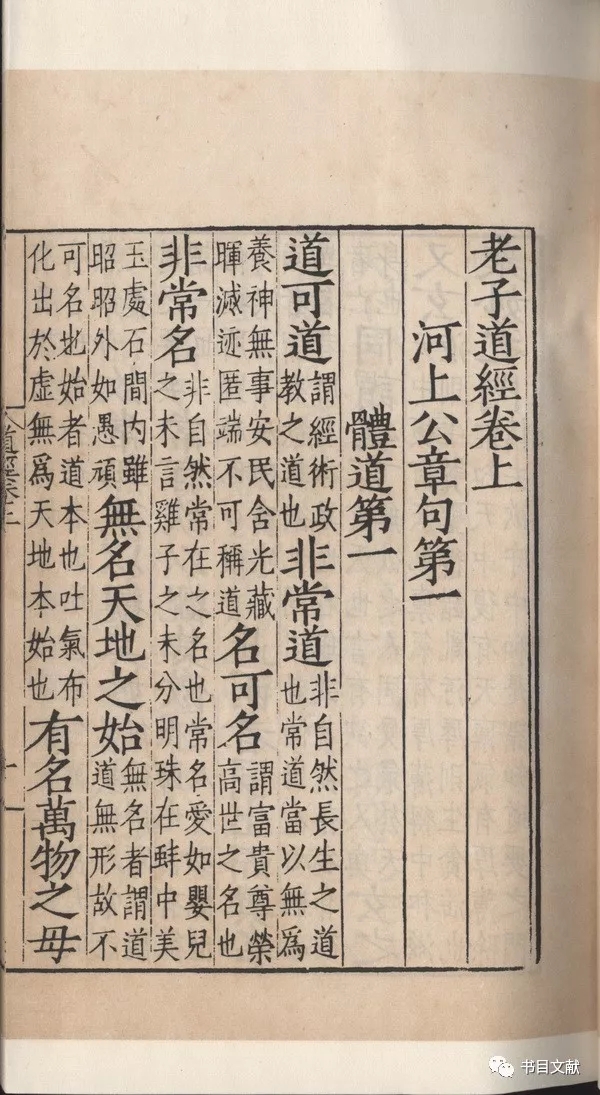 老子道經卷上
河上公章句第一
體道第一
道可道謂經術政教之道也非常道非自然長生之道也常道當以無爲
養神無事安民含光藏暉滅迹匿端不可稱道名可名謂富貴尊榮高世之名也
非常名非自然常在之名也常名愛如嬰兒之未言雞子之未分明珠在蚌中美
玉處石間内雖昭昭外如愚頑無名天地之始無名者謂道道無形故不
可名也始者道本也吐氣布化出於虛無爲天地本始也有名萬物之母
书目文献